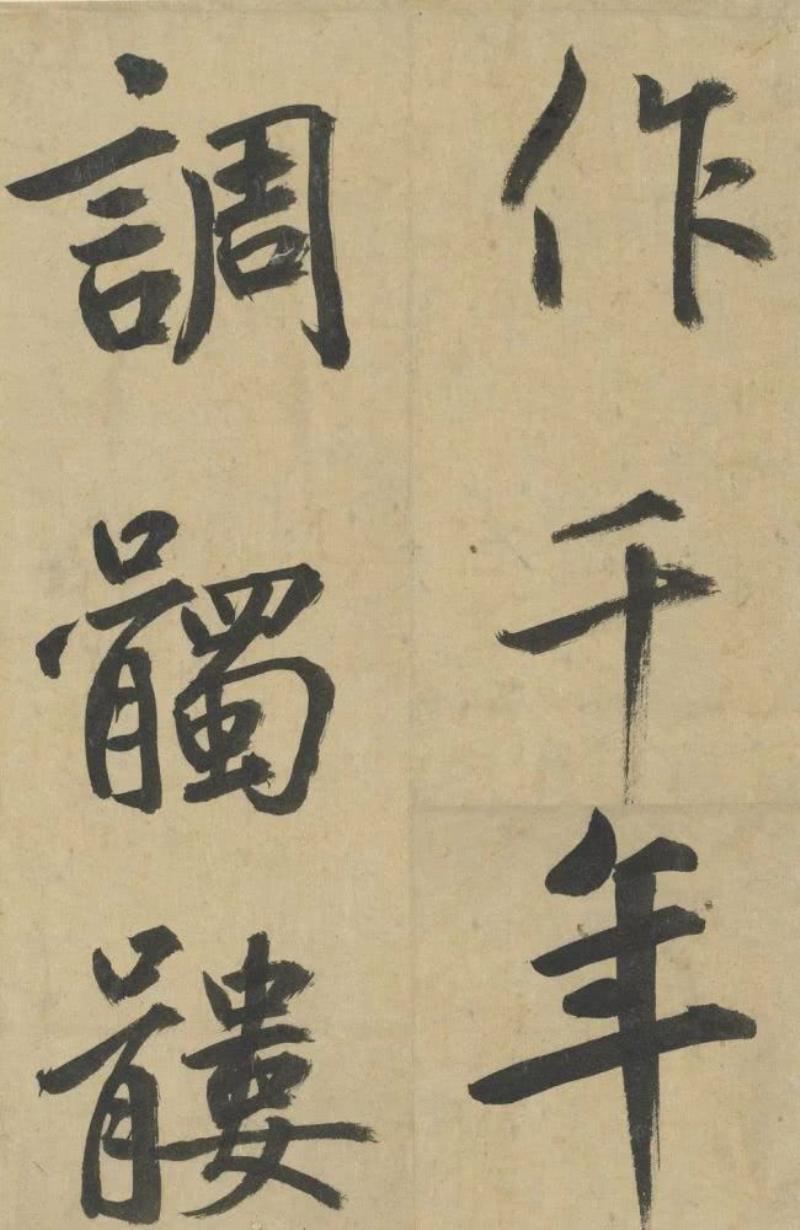 作千年
調髑髏